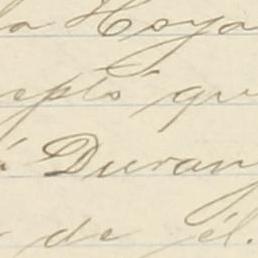 la Hoya
eptó qu
á Duran
de él.